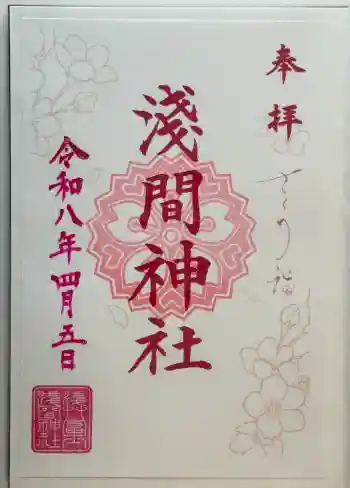 奉拝
さくら詣
淺間神社
令和八年四月五日
淺間神社